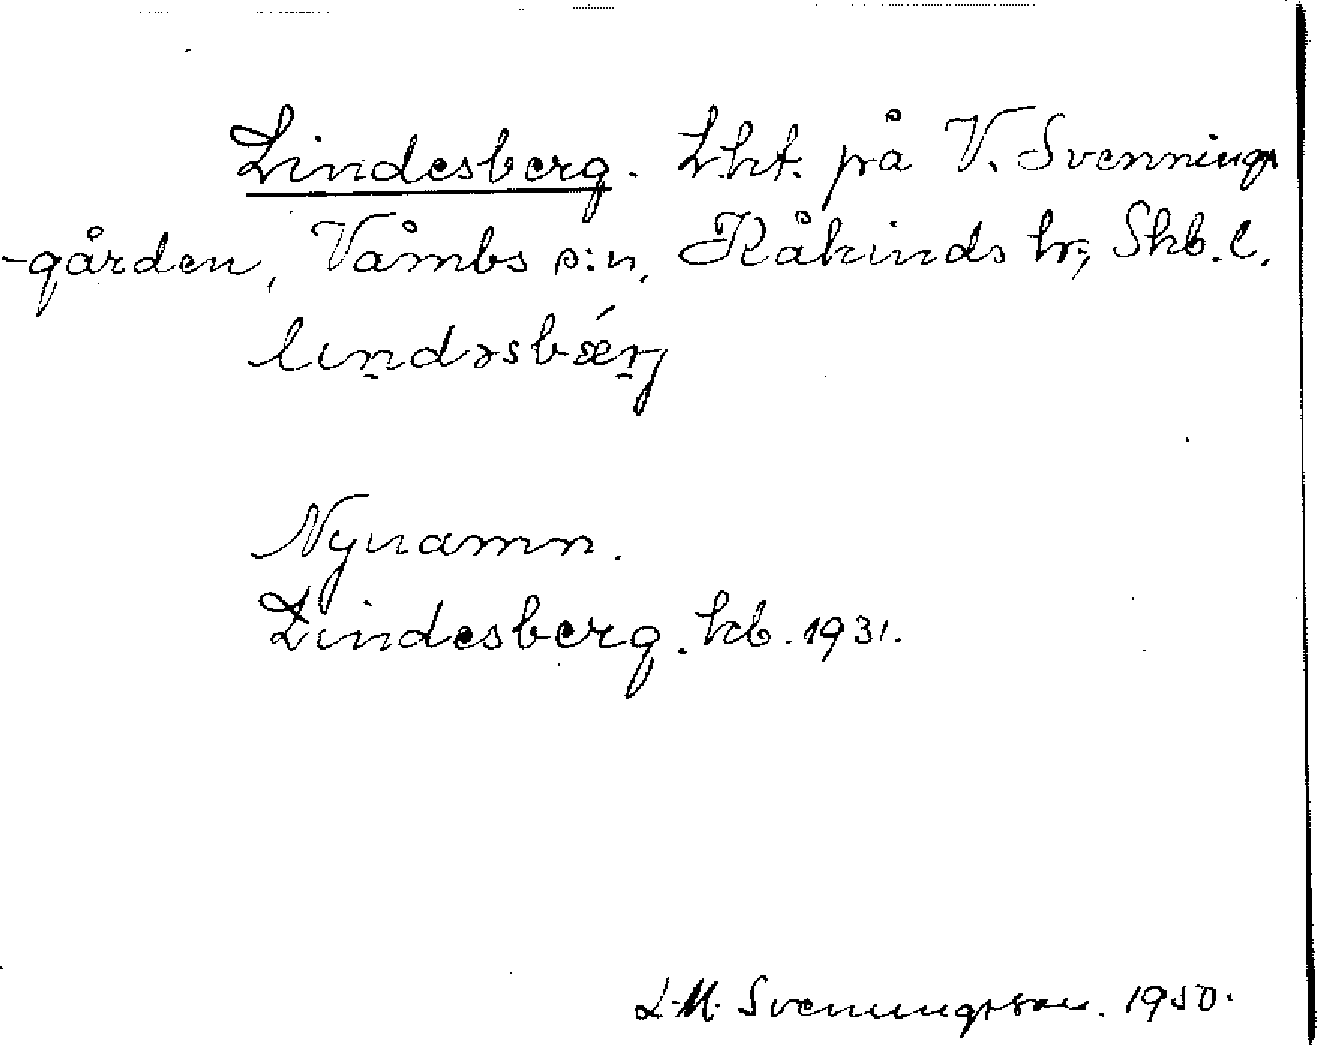 Lindesberg. Lht. på V. Svennings
-gården, Våmbs s:n, Kåkinds hr; Skb. l.
lin̠dəsbǽr̠j
Nynamn.
Lindesberg. kb. 1931.
L-M. Svenningsson. 1950.